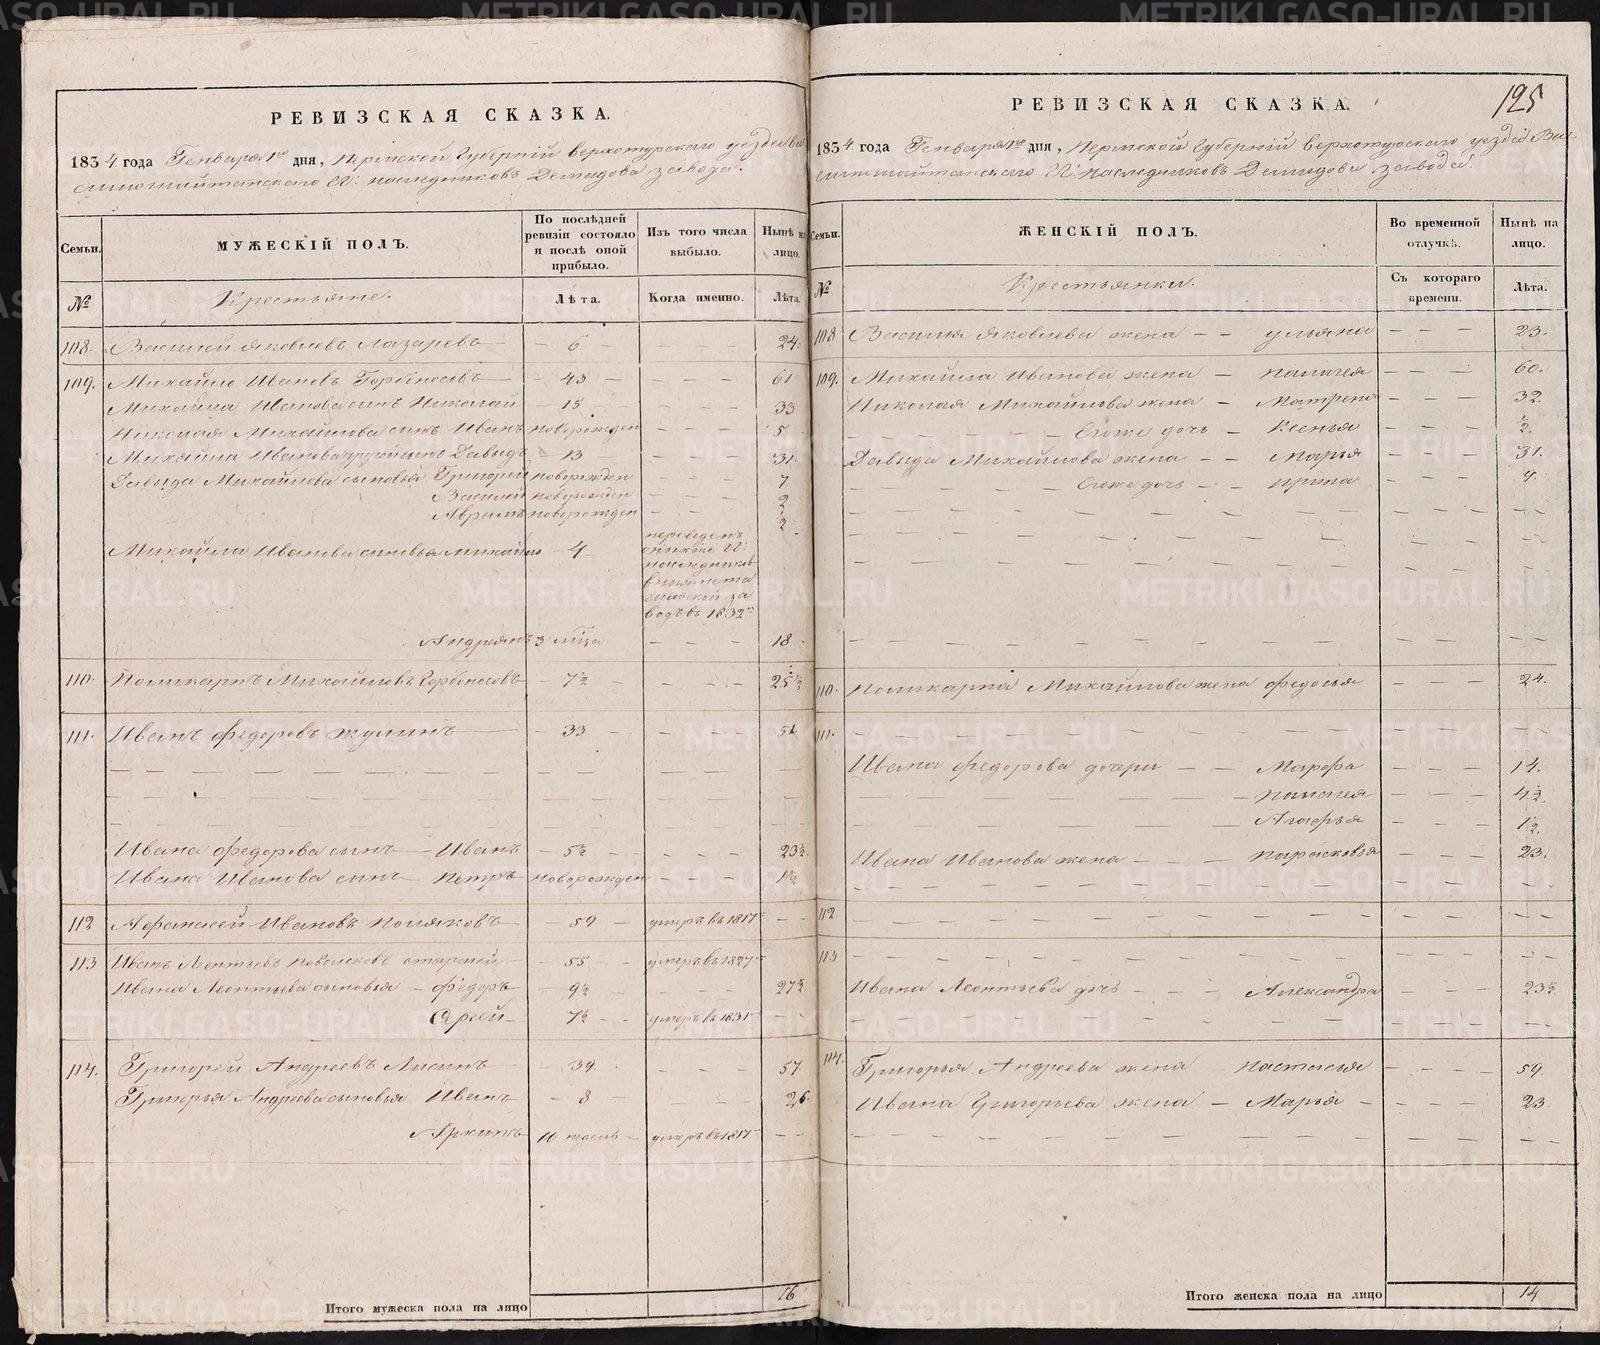 РЕВИЗСКАЯ СКАЗКА.
1834 года Генваря 1го дня, Пермской Губернiй верхотурскаго уезда
наследниковъ Демидова завода.
Семьи.
МУЖЕСКIЙ ПОЛЪ.
По послѣдней ревизiи состояло и послѣ оной прибыло.
Изъ того числа выбыло.
Нынѣ на лицо.
№
Крестьяне.
Лѣта.
Когда именно.
Лѣта.
108. Василей Яковлевъ Лазаревъ — 6 — — — — 24.
109. Михайло Ивановъ Горбоносовъ — 43 — — — — 61
Михайла Иванова сынъ Николай — 15 — — — 33
Николая Михайлова сынъ Иванъ новорожден — — — 5
Михайла Иванова другой сынъ Давыдъ — 13 — — — — 31.
Давыда Михайлова сыновья Григорий новорожден — — — 7
Василей новорожден — — — 2
Аврамъ новорожден — — — 2
Михайла Иванова сыновья Михайло — 4
переведенъ
наследников
в
заводъ въ 1832
Андреянъ 3 — — — 18
110. Поликарпъ Михайловъ Горбоносовъ — 7½ — — — — 25½
111. Иванъ федоровъ жулинъ — 33 — — — 51
Ивана федорова сынъ — Иванъ — 5½ — — — — 23½.
Ивана Иванова сынъ Петръ новорожден — — — 1½
112 Афонасей Ивановъ Поляковъ — 59 — умеръ въ 1817 — —
113 Иванъ Леонтьевъ старшей — 55 умеръ въ 1827
Ивана Леонтьева сыновья — федоръ — 9½ — — — 27½
7½ — умеръ въ 1831 — —
114. Григорей Андреевъ Лисинъ — 39. — — — 57
Григорья Андреева сыновья Иванъ — 8 — — — — 26
Архипъ 10 недель — умеръ въ 1817 — —
Итого мужеска пола на лицо 16
125
РЕВИЗСКАЯ СКАЗКА.
1834 года Генваря 1го дня, Пермской Губернiй верхотурскаго уезда
наследниковъ Демидова завода
Семьи.
ЖЕНСКIЙ ПОЛЪ.
Во временной отлучкѣ.
Нынѣ на лицо.
№
Крестьянки.
Съ котораго времени.
Лѣта.
108 Василья Яковлева жена — — ульяна — — — 23.
109. Михайла Иванова жена — Палагея — — — 60.
Николая Михайлова жена — Матрена — — — 32.
Егоже дочь — Ксенья — — — ½.
Давыда Михайлова жена — — Марья — — — 31.
Егоже дочь — — ирина — — — 4.
110. Поликарпа Михайлова жена федосья — — — 24.
111.
Ивана федорова дочери — — Марфа — — — 14.
Палагея — — — 4½.
Агафья — — — 1½.
Ивана Иванова жена — — — парасковья — — — 23.
112.
113
Ивана Леонтьева дочь — — — Александра — — — 23½.
114. Григорья Андреева жена — настасья — — — — 59.
Ивана Григорьева жена — Марья — — — — 23
Итого женска пола на лицо 14